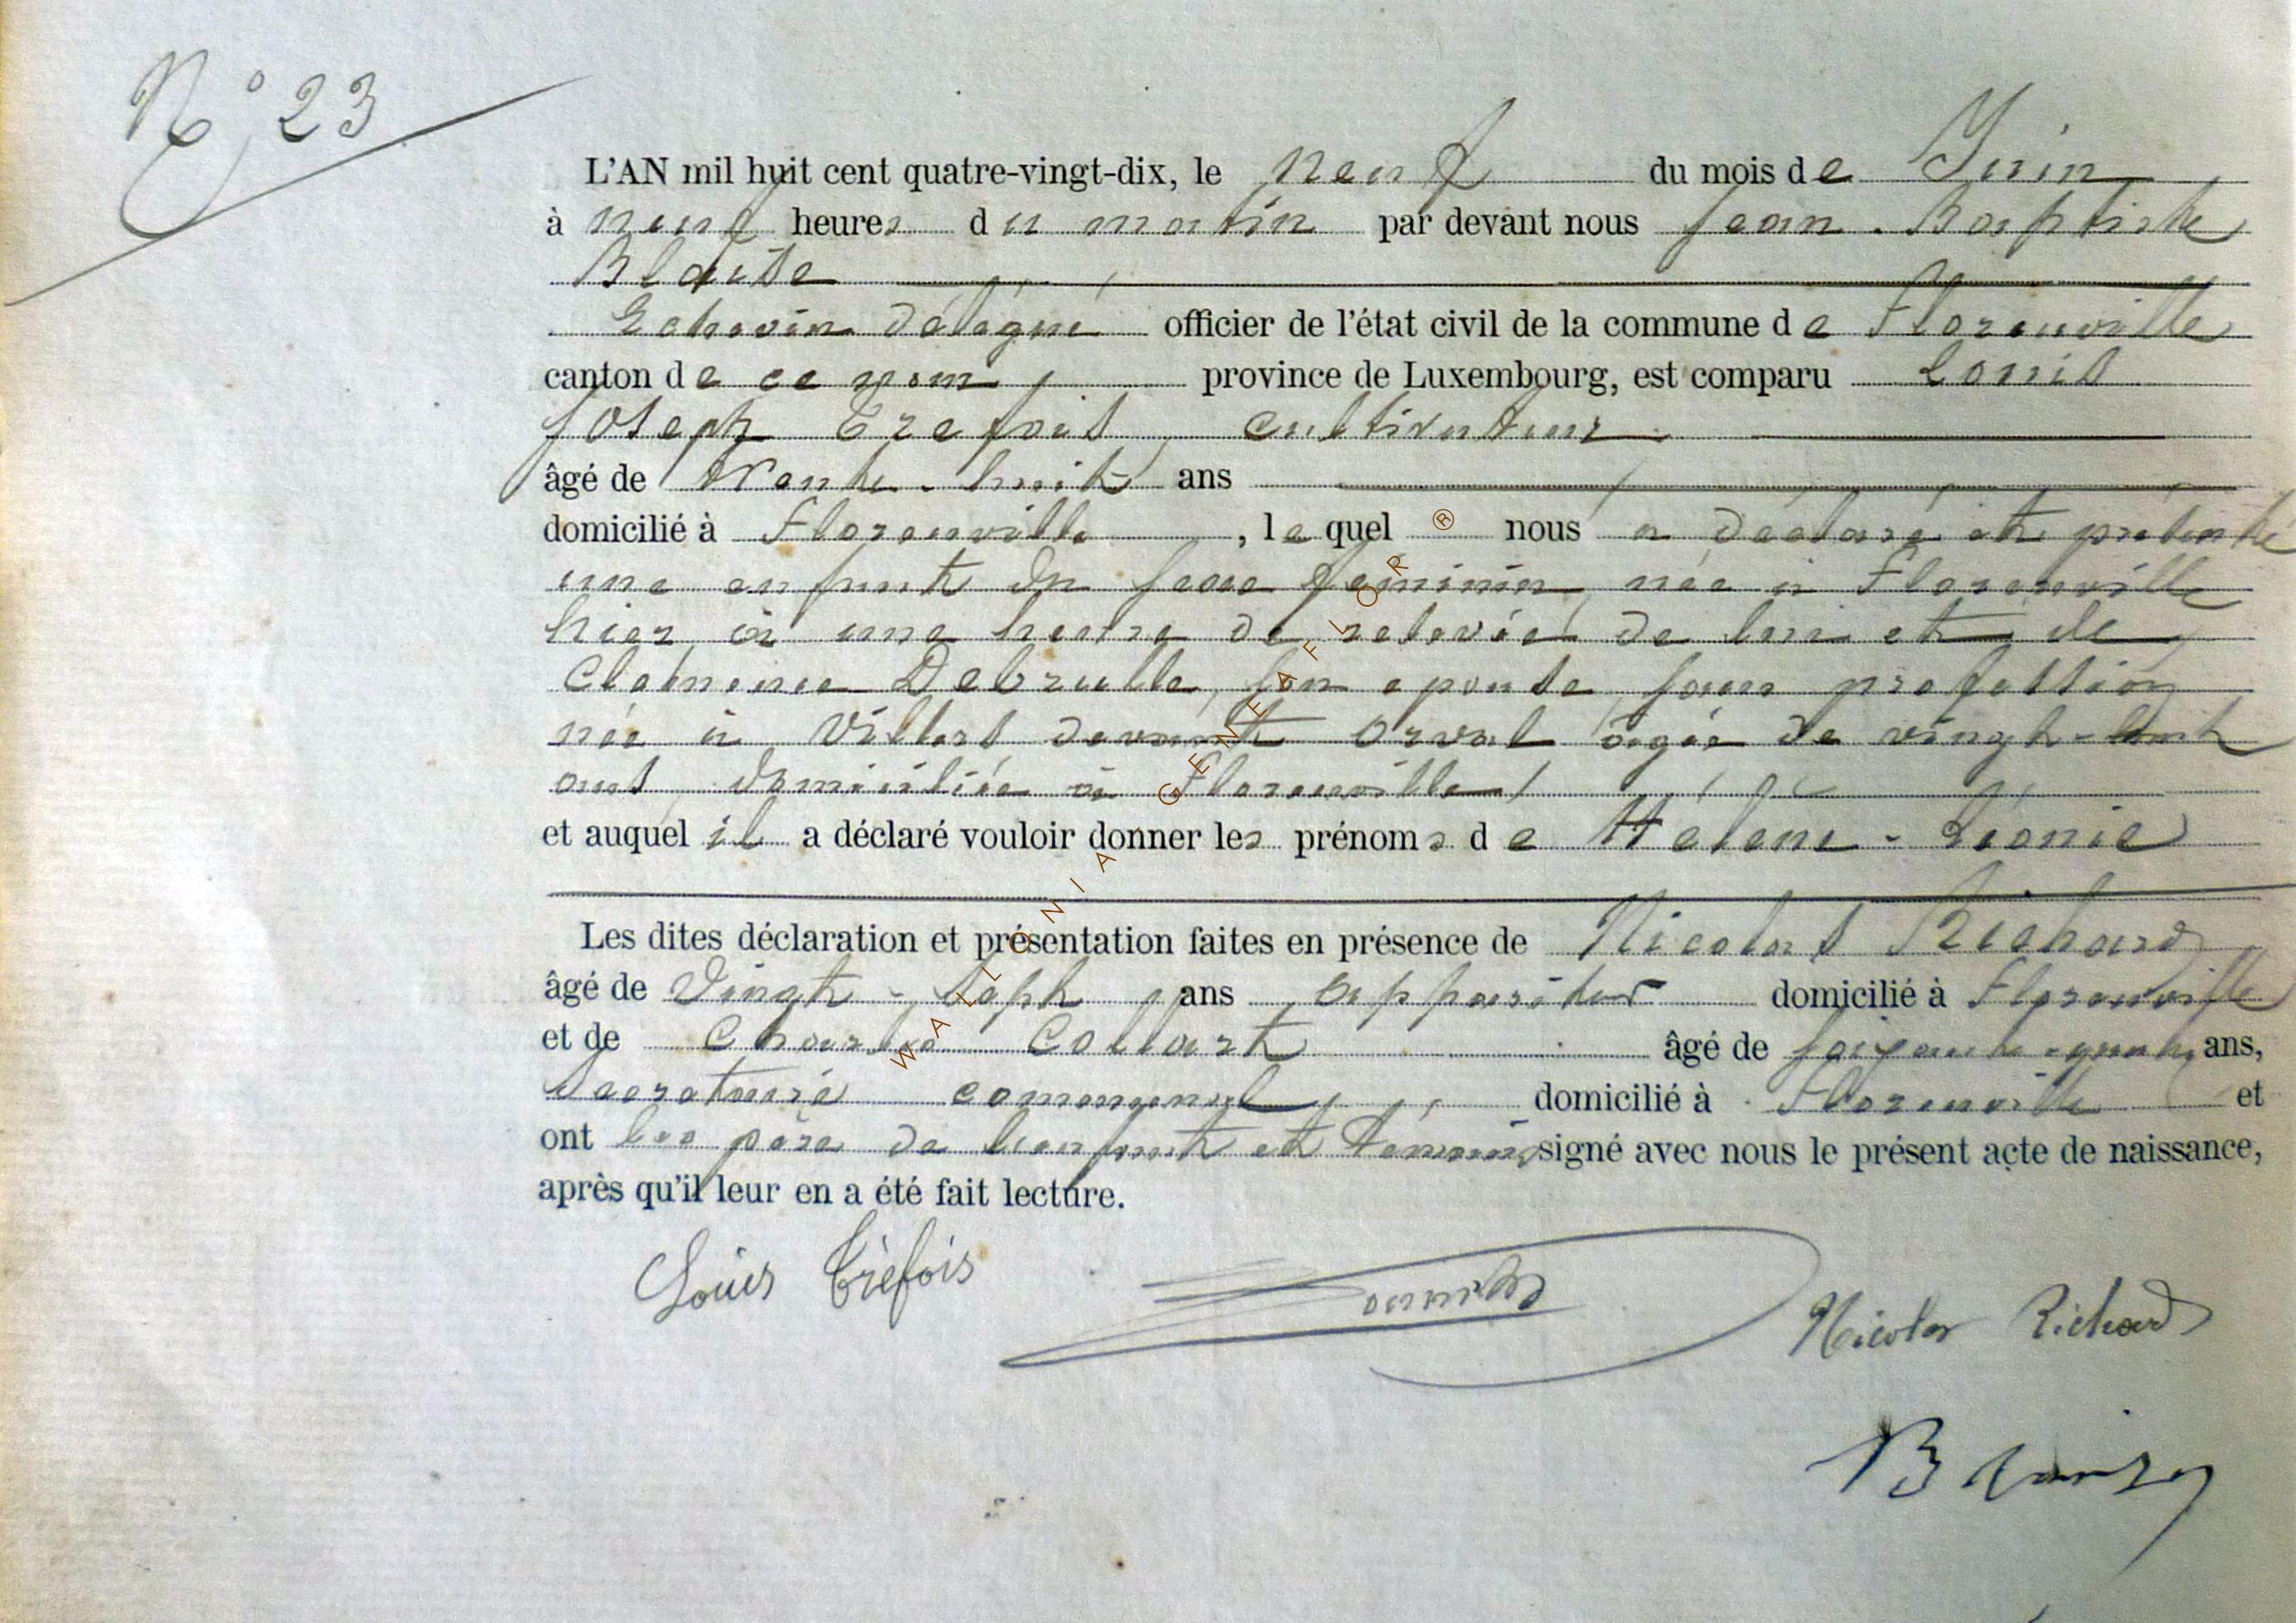 N° 23
L'AN mil huit cent quatre-vingt-dix, le neuf du mois de Juin
à neuf heures du matin par devant nous Jean-Baptiste
Blaise
Echevin délégué officier de l'état civil de la commune de Florenville
canton de ce nom, province de Luxembourg, est comparu Louis
Joseph Trefois, cultivateur
âgé de trente-huit ans
domicilié à Florenville, lequel nous a déclaré et présenté
une enfant du sexe féminin, née à Florenville
hier à une heure de relevée de lui et de
Clémence Debrulle, son épouse, sans profession
née à Villers devant Orval âgée de vingt-huit
ans, domiciliée à Florenville
et auquel il a déclaré vouloir donner les prénoms de Hélène-Léonie
Les dites déclaration et présentation faites en présence de Nicolas Richard
âgé de vingt-sept ans appariteur domicilié à Florenville
et de Charles Collart âgé de soixante-quatre ans,
Secrétaire communal, domicilié à Florenville et
ont les père de l'enfant et témoins signé avec nous le présent acte de naissance,
après qu'il leur en a été fait lecture.
Louis Tréfois
Nicolas Richard
WALLONIA GENEAFLOR ®